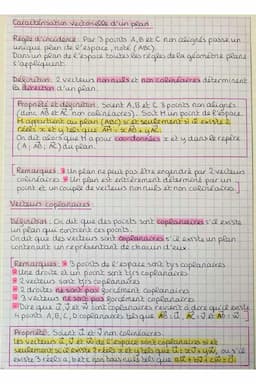 Caractérisation vectorielle d'un plan
Règle d'incidence : Par 3 points A, B et C non alignés passe un
unique plan de l'espace, noté (ABC).
Dans un plan de l'espace toutes les règles de la géométrie plane
s'appliquent.
Définition : 2 vecteurs non nuls et non colinéaires déterminent
la direction d'un plan.
Propriété et définition : Soient A, B et C 3 points non alignés
(donc AB et AC non colinéaires). Soit M un point de l'espace.
M appartient au plan (ABC) si et seulement si il existe 2
réels x et y tels que AM = xAB + yAC.
On dit alors que M a pour coordonnées x et y dans le repère
(A; AB; AC) du plan.
Remarques : Un plan ne peut pas être engendré par 2 vecteurs
colinéaires. Un plan est entièrement déterminé par un
point et un couple de vecteurs non nuls et non colinéaires.
Vecteurs coplanaires
Définition : On dit que des points sont coplanaires s'il existe
un plan qui contient ces points.
On dit que des vecteurs sont coplanaires s'il existe un plan
contenant un représentant de chacun d'eux.
Remarques : 3 points de l'espace sont tjrs coplanaires
Une droite et un point sont tjrs coplanaires
2 vecteurs sont tjrs coplanaires
2 droites ne sont pas forcément coplanaires
3 vecteurs ne sont pas forcément coplanaires
Dire que u, v et w sont coplanaires revient à dire qu'il existe
4 points A, B, C, D coplanaires tels que AB = u, AC = v et AD = w.
Propriété : Soient u et v non colinéaires.
Les vecteurs u, v et w de l'espace sont coplanaires si et
seulement si il existe 2 réels x et y tels que w = xu + yv, ou s'il
existe 3 réels a, b et c non tous nuls tels que au + bv + cw = 0.